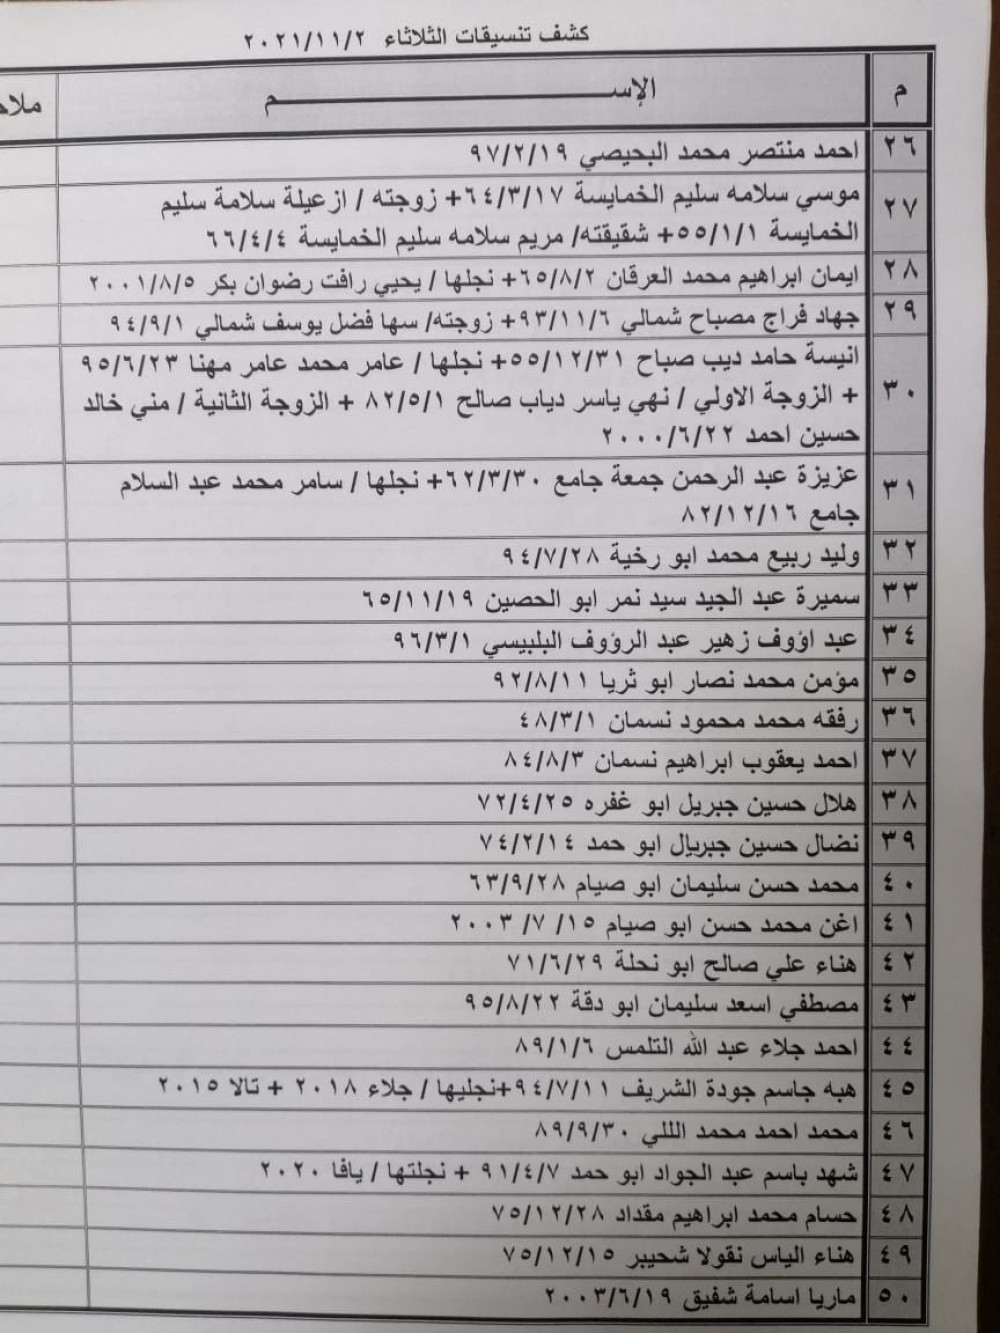 كشف تنسيقات الثلاثاء ٢٠٢١/١١/٢
م الإســـــــــــــــم
٢٦ احمد منتصر محمد البحيصي ٩٧/٢/١٩
٢٧ موسي سلامه سليم الخمايسة ٦٤/٣/١٧+ زوجته / ازعيلة سلامة سليم
الخمايسة ٥٥/١/١+ شقيقته/ مريم سلامه سليم الخمايسة ٦٦/٤/٤
٢٨ ايمان ابراهيم محمد العرقان ٦٥/٨/٢+ نجلها / يحيي رافت رضوان بكر ٢٠٠١/٨/٥
٢٩ جهاد فراج مصباح شمالي ٩٣/١١/٦+ زوجته/ سها فضل يوسف شمالي ٩٤/٩/١
٣٠ انيسة حامد ديب صباح ٥٥/١٢/٣١+ نجلها / عامر محمد عامر مهنا ٩٥/٦/٢٣
+ الزوجة الاولي / نهي ياسر دياب صالح ٨٢/٥/١ + الزوجة الثانية / مني خالد
حسين احمد ٢٠٠٠/٦/٢٢
٣١ عزيزة عبد الرحمن جمعة جامع ٦٢/٣/٣٠+ نجلها / سامر محمد عبد السلام
جامع ٨٢/١٢/١٦
٣٢ وليد ربيع محمد ابو رخية ٩٤/٧/٢٨
٣٣ سميرة عبد الجيد سيد نمر ابو الحصين ٦٥/١١/١٩
٣٤ عبد اؤوف زهير عبد الرؤوف البلبيسي ٩٦/٣/١
٣٥ مؤمن محمد نصار ابو ثريا ٩٢/٨/١١
٣٦ رفقه محمد محمود نسمان ٤٨/٣/١
٣٧ احمد يعقوب ابراهيم نسمان ٨٤/٨/٣
٣٨ هلال حسين جبريل ابو غفره ٧٢/٤/٢٥
٣٩ نضال حسين جبريإل ابو حمد ٧٤/٢/١٤
٤٠ محمد حسن سليمان ابو صيام ٦٣/٩/٢٨
٤١ اغن محمد حسن ابو صيام ١٥/ ٧/ ٢٠٠٣
٤٢ هناء علي صالح ابو نحلة ٧١/٦/٢٩
٤٣ مصطفي اسعد سليمان ابو دقة ٩٥/٨/٢٢
٤٤ احمد جلاء عبد الله التلمس ٨٩/١/٦
٤٥ هبه جاسم جودة الشريف ٩٤/٧/١١+نجليها / جلاء ٢٠١٨ + تالا ٢٠١٥
٤٦ محمد احمد محمد اللي ٨٩/٩/٣٠
٤٧ شهد باسم عبد الجواد ابو حمد ٩١/٤/٧ + نجلتها / يافا ٢٠٢٠
٤٨ حسام محمد ابراهيم مقداد ٧٥/١٢/٢٨
٤٩ هناء الياس نقولا شحيبر ٧٥/١٢/١٥
٥٠ ماريا اسامة شفيق ٢٠٠٣/٦/١٩